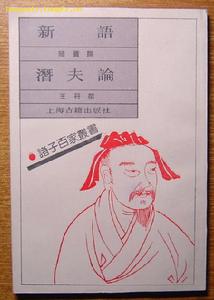 新語
陸賈撰
潛夫論
王符撰
上海古籍出版社
諸子百家叢書